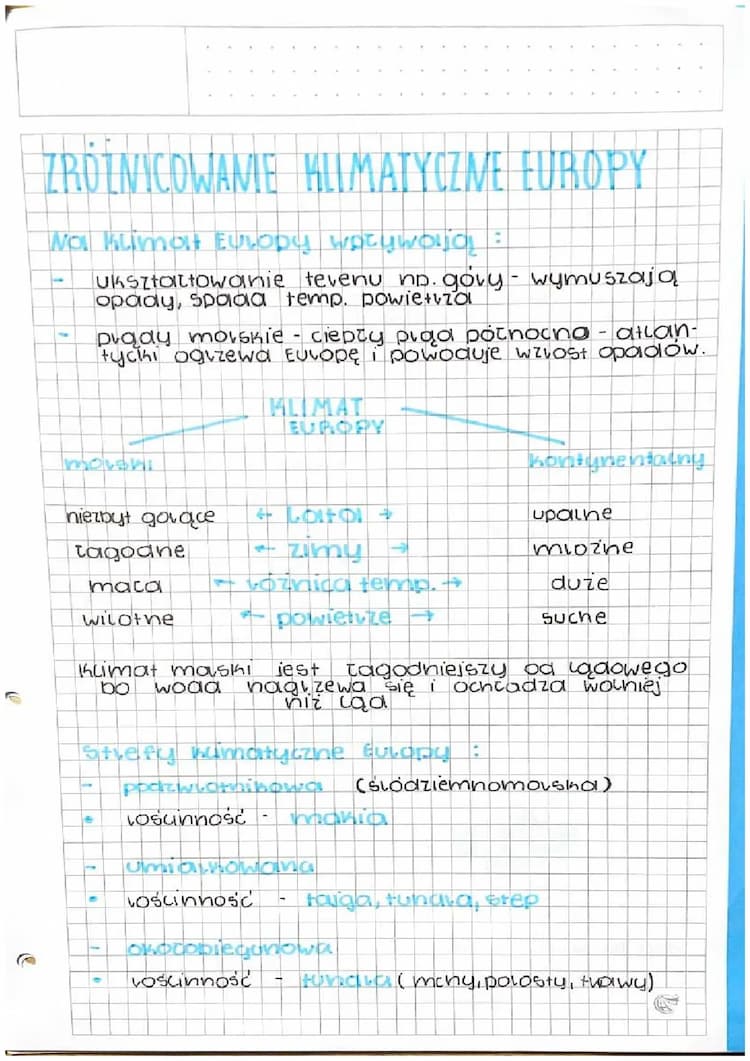 ZRÓŻNICOWANIE KLIMATYCZNE EUROPY
Na klimat Europy wpływają :
- ukształtowanie terenu np. góry - wymuszają
opady, spada temp. powietrza
- prądy morskie - ciepły prąd północno - atlan-
tycki ogrzewa Europę i powoduje wzrost opadów.
KLIMAT
EUROPY
morski kontynentalny
niezbyt gorące ← Lata → upalne
łagodne ← zimy → mroźne
mała ← różnica temp. → duże
wilotne ← powietrze → suche
Klimat morski jest łagodniejszy od lądowego
bo woda nagrzewa się i ochładza wolniej
niż ląd
Strefy klimatyczne Europy :
- podzwrotnikowa (śródziemnomorska)
• roślinność - makia
- umiarkowana
• roślinność - tajga, tundra, step
- okołobiegunowa
• roślinność - tundra (mchy, porosty, trawy)